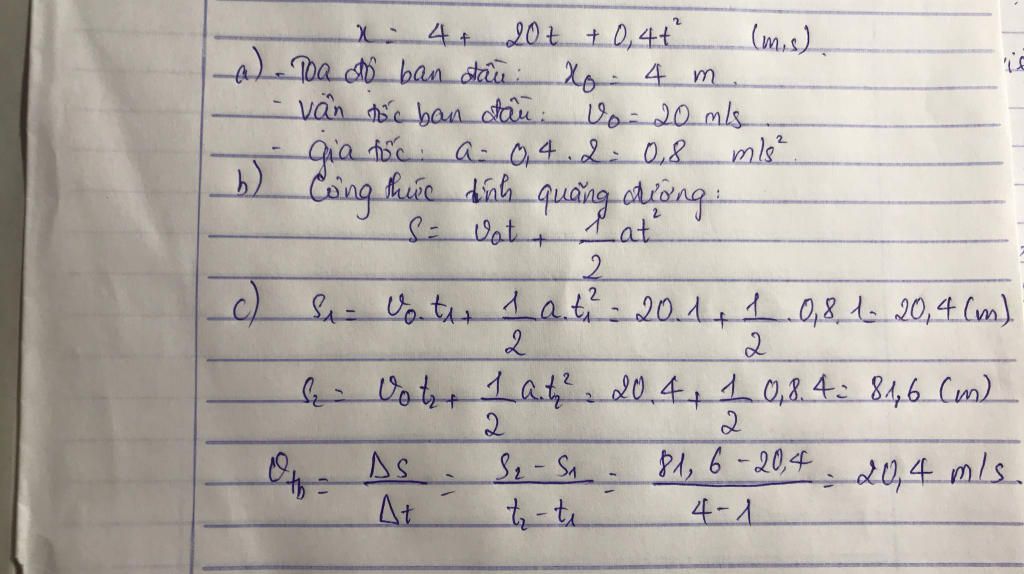 x = 4 + 20t + 0,4t² (m,s).
a) - Tọa độ ban đầu: x₀ = 4 m.
- vận tốc ban đầu: v₀ = 20 m/s.
- gia tốc: a = 0,4 . 2 = 0,8 m/s².
b) Công thức tính quãng đường:
S = v₀t + 1/2 at²
c) S₁ = v₀.t₁ + 1/2 a.t₁² = 20.1 + 1/2 .0,8.1 = 20,4 (m).
S₂ = v₀t₂ + 1/2 a.t₂² = 20.4 + 1/2 0,8.4 = 81,6 (m)
v_tb = ΔS/Δt = S₂ - S₁/t₂ - t₁ = 81,6 - 20,4/4 - 1 = 20,4 m/s.